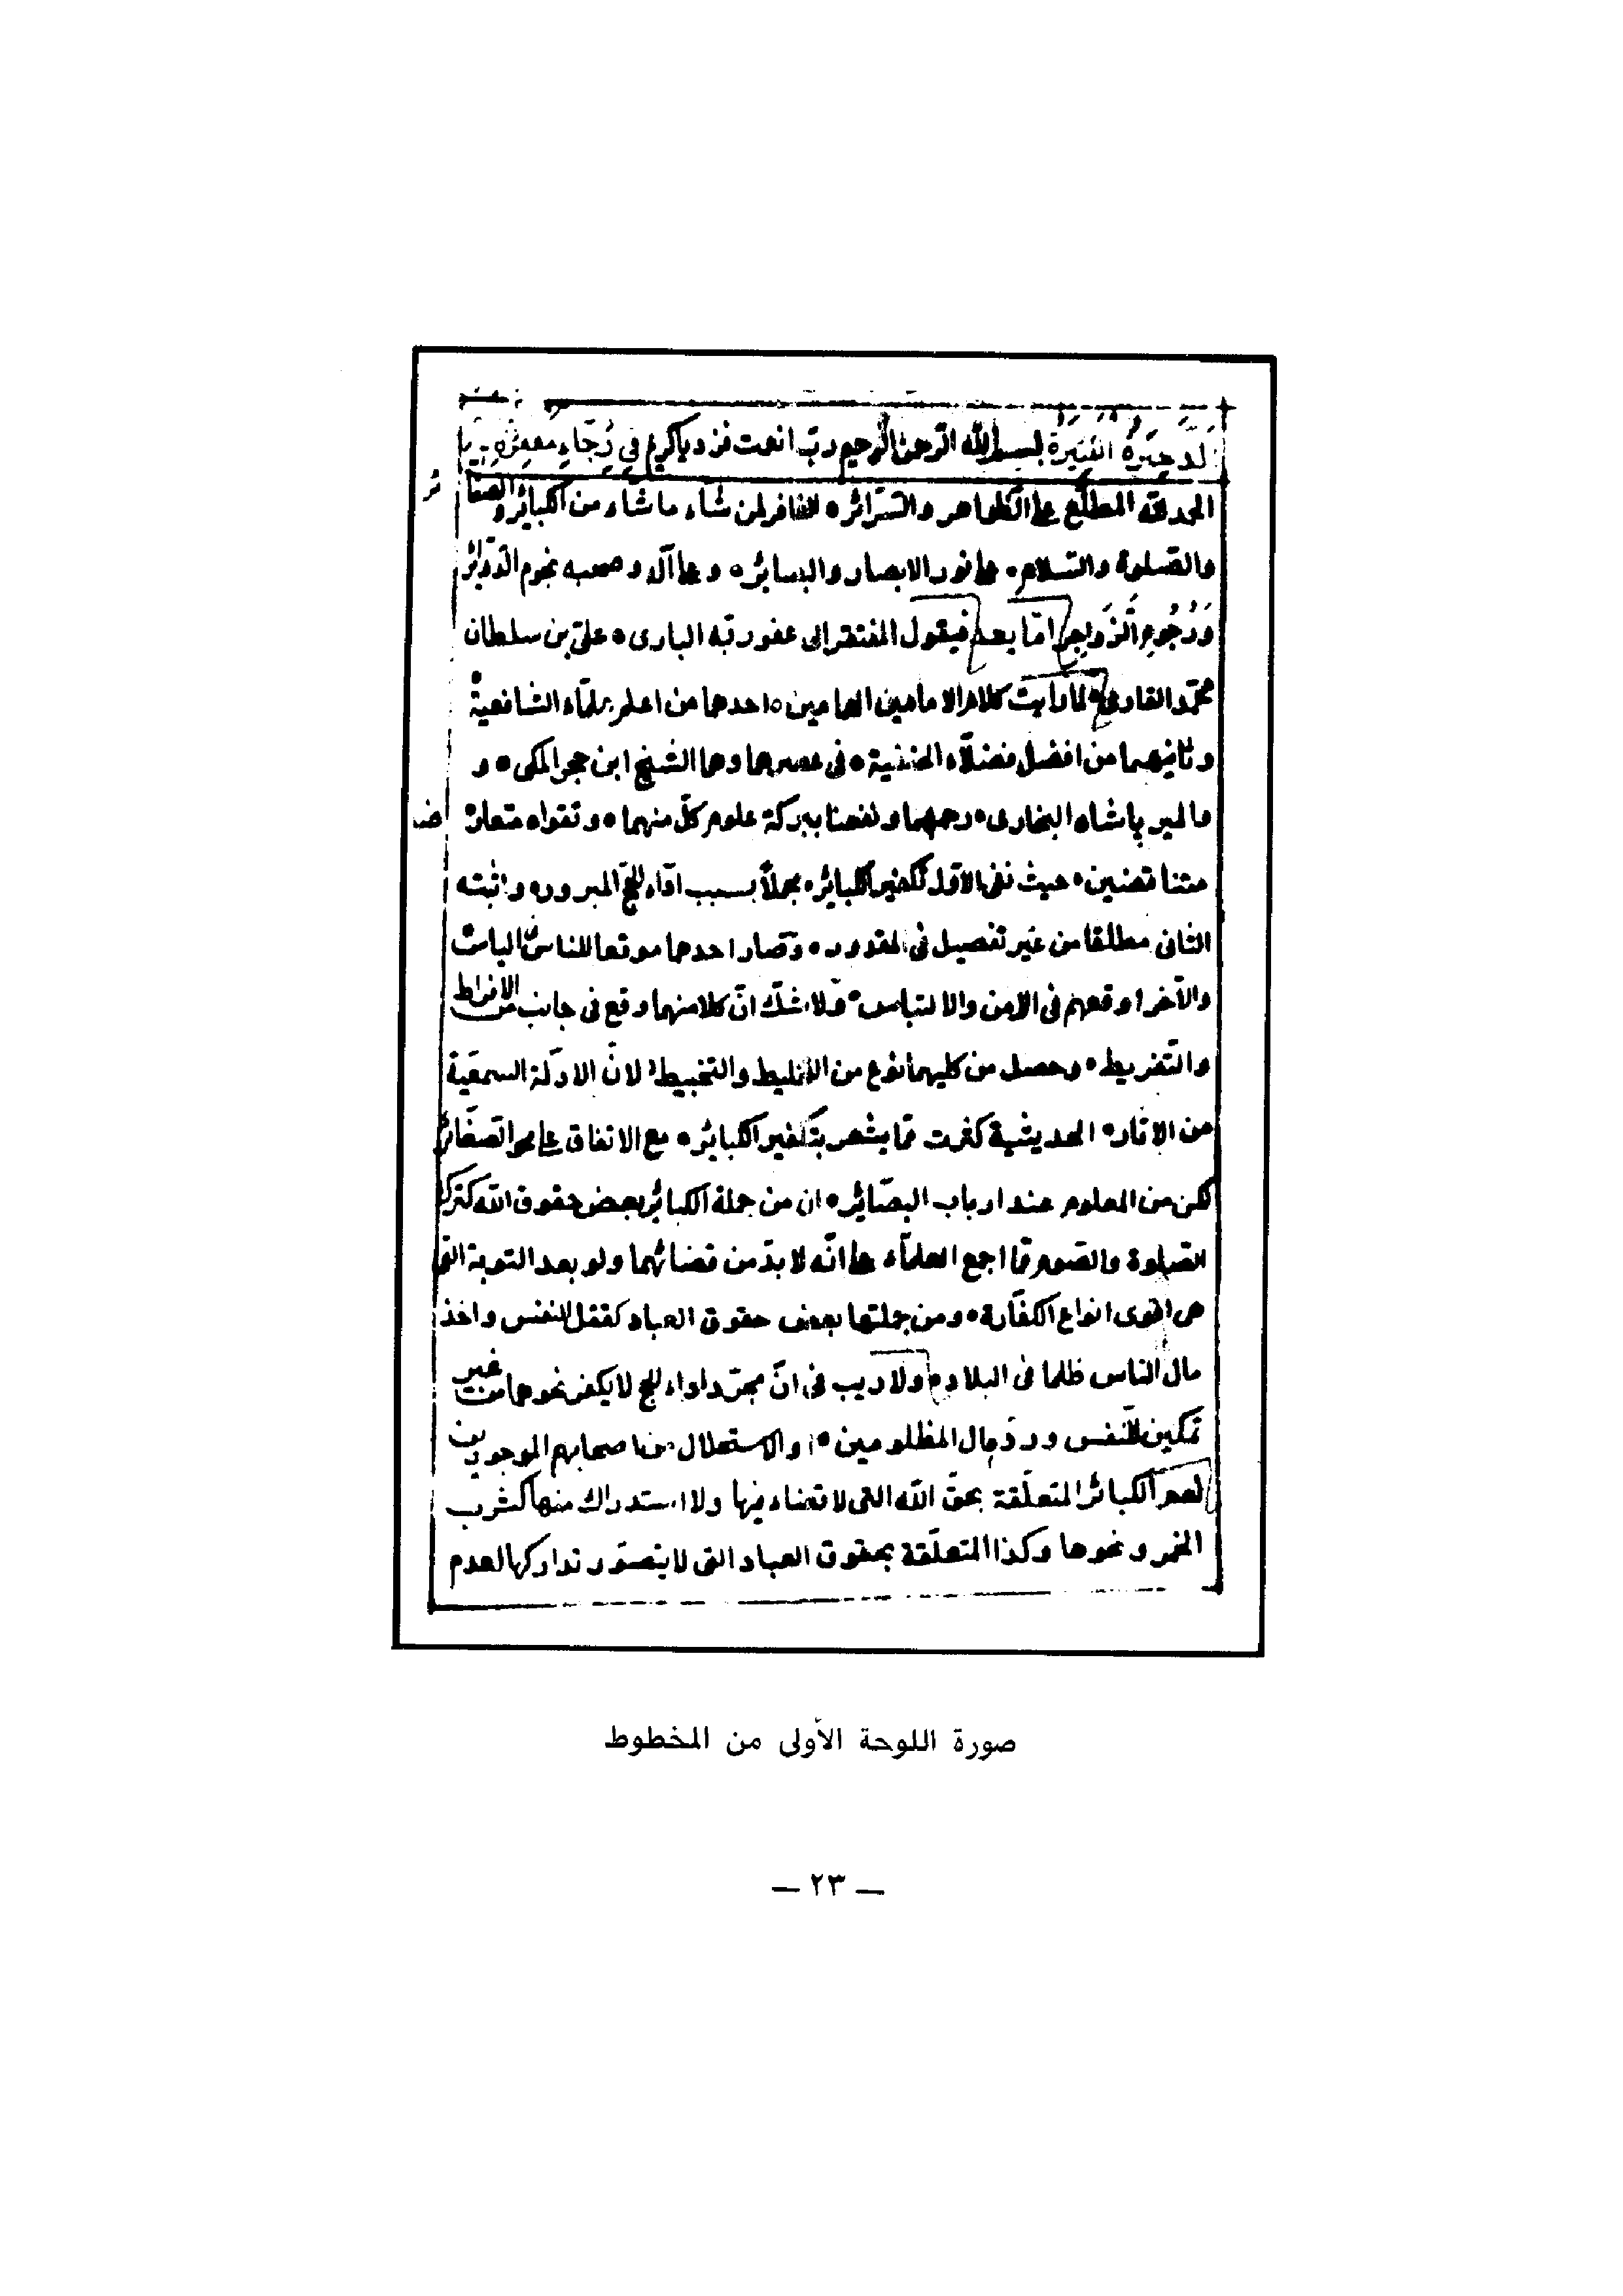 الذخيرة الكثيرة بسم الله الرحمن الرحيم رب انعمت فزد يا كريم في رجاء مغفرة
الحمد لله المطلّع على الظواهر والسّرائر الغافر لمن شاء ما شاء من الكبائر والصغائر
والصّلوة والسّلام على نور الابصار والبصائر وعلى آله وصحبه نجوم الدّوائر
وَرُجُومِ الزّواجر امّا بعد فيقول المفتقر الى عفو ربّه البارى علىّ بن سلطان
محمّد القارى لمّا رايت كلام الامامين الهمامين احدهما من اعلم علمّاء الشافعيّة
وثانيهما من افضل فضلآء الحنفية فى عصرهما وهما الشيخ ابن حجر المكى و
مالمير باشاه البخارى رحمهما ونفعنا ببركة علوم كلّ منهما وتقواه متعارضـ
متناقضين حيث نفى الاوّل تكفير الكبائر مجملاً بسبب ادّاء الحجّ المبرور واثبته
الثانى مطلقا من غير تفصيل فى المقدور وصار احدهما موقعا للناس فى الباس
والآخر اوقعهم فى الامن والالتباس ولا شكّ انّ كلا منهما وقع فى جانب من الافراط
والتّفريط وحصل من كليهما نوع من التخليط والتخبيط لانّ الادلّة السمعيّة
من الاثار الحديثية كثرت ممّا يشعر بتكفير الكبائر مع الاتفاق على محو الصّغائر
لكن من المعلوم عند ارباب البصّائر ان من جملة الكبائر بعض حقوق الله كترك
الصّلوة والصّوم ممّا اجمع العلمّاء على انّه لا بدّ من قضائهما ولو بعد التوبة التى
هى اقوى انواع الكفّارة ومن جملتها بعض حقوق العباد كقتل النفس واخذ
مال الناس ظلما فى البلاد ولا ريب فى انّ مجرّد اداء الحج لا يكفر نحوهما من غير
تمكين للنّفس وردّ مال المظلومين او الاستحلال من اصحابهم الموجودين
نعم الكبائر المتعلّقة بحقّ الله التى لا قضاء فيها ولا استدراك منها كشرب
الخمر ونحوها وكذا المتعلّقة بحقوق العباد التى لا يتصوّر تداركها لعدم
صورة اللوحة الأولى من المخطوط
— ٢٣ —